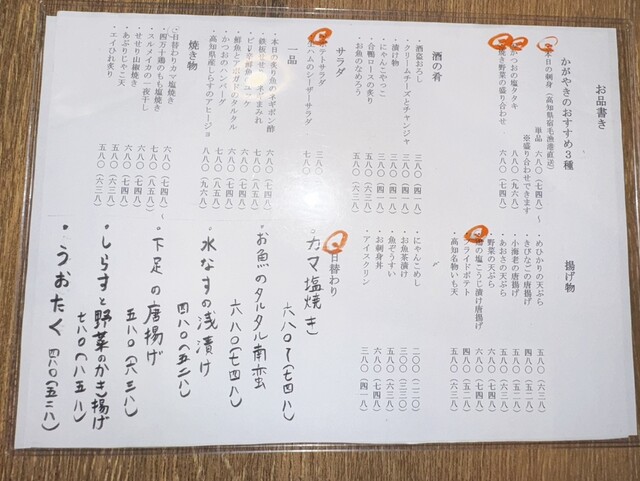 お品書き
かがやきのおすすめ3種
本日の刺身(高知県宿毛漁港直送)
単品 六八〇(七四八)〜
※盛り合わせできます
かつおの塩タタキ 八八〇(九六八)
焼き野菜の盛り合わせ 六八〇(七四八)
酒の肴
・酒盗おろし 三八〇(四一八)
・クリームチーズとチャンジャ 三八〇(四一八)
・漬け物 三八〇(四一八)
・にゃんこやっこ 三八〇(四一八)
・合鴨ロースの炙り 五八〇(六三八)
・お魚のなめろう 五八〇(六三八)
サラダ
ポテトサラダ 三八〇
生ハムのシーザーサラダ 七八〇
一品
・本日の炙り魚のネギポン酢 六八〇(七四八)
・鮮魚とアボカドのタルタル
・かつおのハンバーグ
・高知県産しらすのアヒージョ 八八〇(九六八)
焼き物
・日替わりカマ塩焼き 六八〇(七四八)〜
・四万十鶏のもも塩焼き 七八〇(八五八)
・スルメイカの一夜干し 六八〇(七四八)
・せせり山椒焼き
・あぶりじゃこ天
・エイひれ炙り 五八〇(六三八)
揚げ物
・めひかりの天ぷら 五八〇(六三八)
・きびなごの唐揚げ 四八〇(五二八)
・小海老の唐揚げ
・あおさの天ぷら
・野菜の天ぷら
鶏の塩こうじ漬け唐揚げ
フライドポテト 四八〇(五二八)
・高知名物いも天 五八〇(六三八)
・にゃんこめし 二〇〇(二二〇)
・お魚茶漬け
・魚ぞうすい
・お刺身丼 六八〇(七四八)
・アイスクリン 三八〇(四一八)
日替わり
・カマ塩焼き 六八〇〜(七四八)
・お魚のタルタル南蛮 六八〇(七四八)
・水なすの浅漬け 四八〇(五二八)
・下足の唐揚げ 五八〇(六三八)
・しらすと野菜のかき揚げ 七八〇(八五八)
・うおたく 四八〇(五二八)